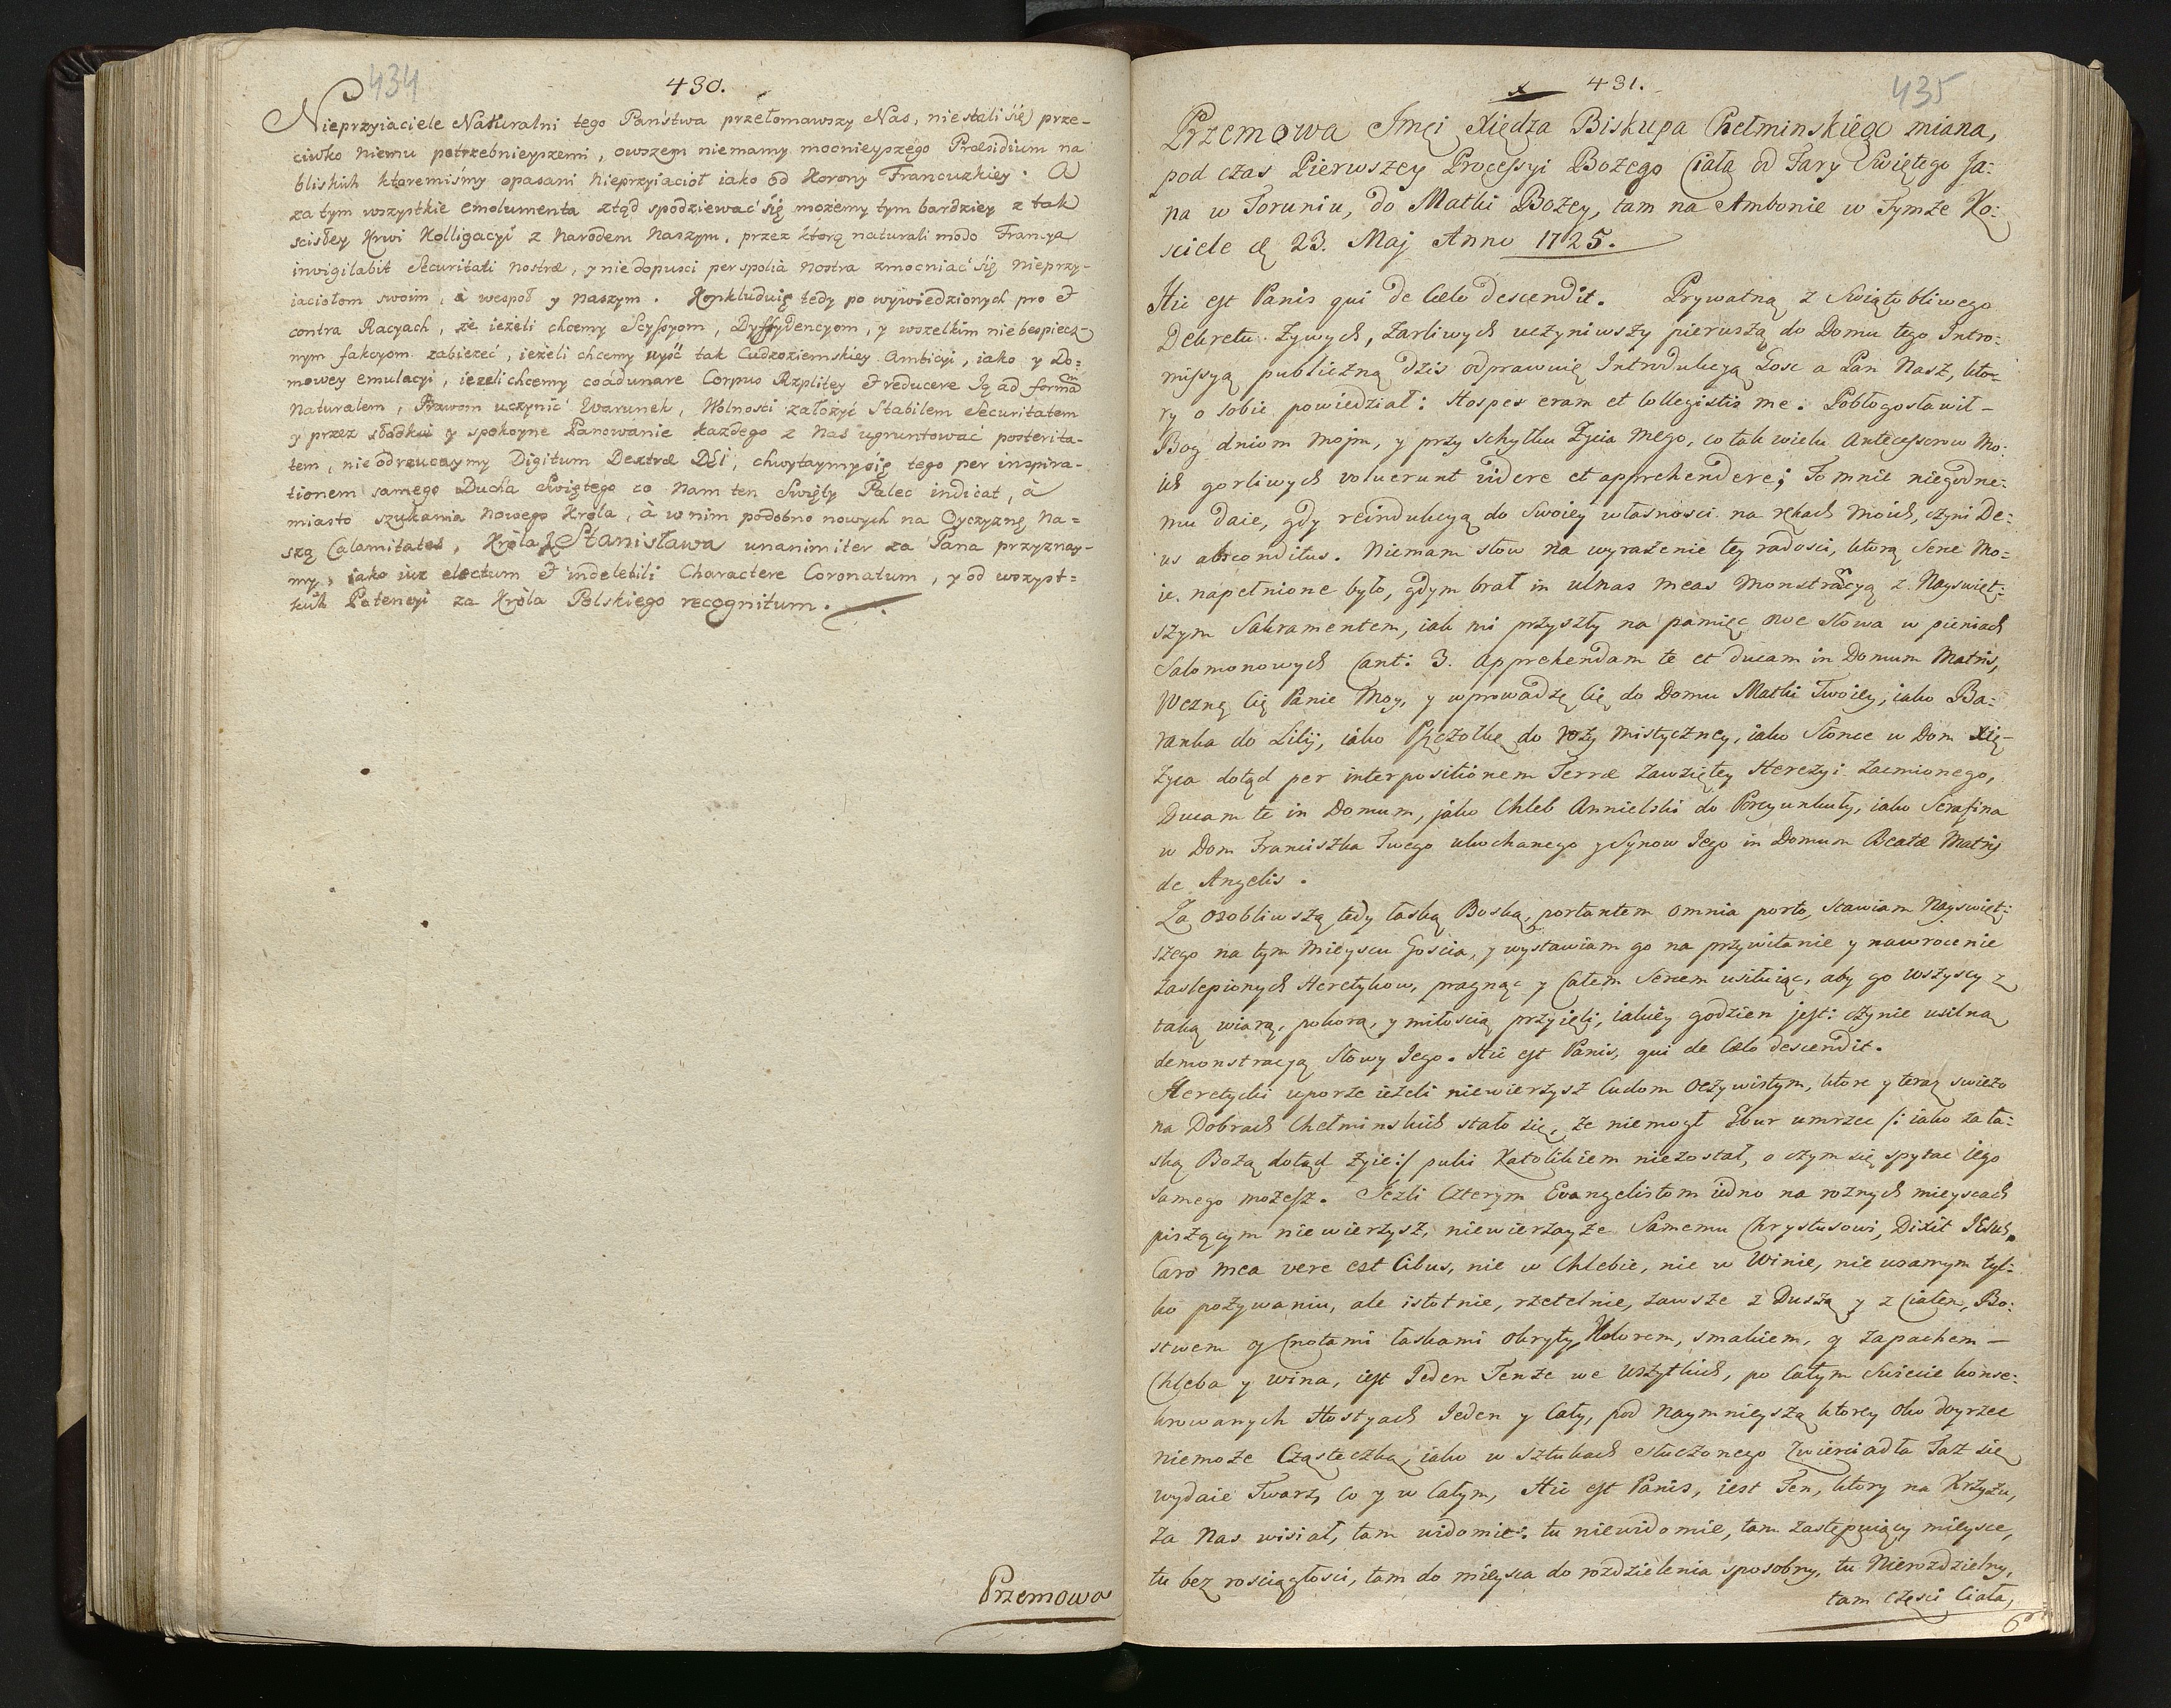 434
430.
Nieprzyiaciele Naturalni tego Państwa przełomawszy Nas, niestali się prze-
ciwko niemu potrzebnieyszemi, owszem niemamy mocnieyszego Præsidium na
bliskich ktoremiśmy opasani Nieprzyiacioł iako od Korony Francuzkiey. A
za tym wszystkie emolumenta ztąd spodziewać się możemy tym bardziey z tak
scisłey Krwi Kolligacyi z Narodem Naszym, przez ktorą naturali modo Francya
invigilabit Securitati nostræ, y niedopusci per spolia nostra zmocniać się Nieprzy-
iaciołom swoim, à wespoł y Naszym. Konkluduię tedy po wywiedzionych pro et
contra Racyach, że ieżeli chcemy Scyssyom, Dyffydencyom, y wszelkim niebespiecz-
nym fakcyom zabieżeć, ieżeli chcemy uyść tak Cudzoziemskiey Ambicyi, iako y Do=
mowey emulacyi, ieżeli chcemy coadunare Corpus Rzplitey et reducere Ią ad formam
Naturalem, Prawom uczynić Warunek, Wolności założyć Stabilem Securitatem
y przez słodkie y spokoyne Panowanie każdego z Nas ugruntować posterita-
tem, nieodrzucaymy Digitum Dextræ DEI, chwytaymy się tego per inspira-
tionem samego Ducha Swiętego co Nam ten Swięty Palec indicat, à
miasto szukania Nowego Krola, à w nim podobno nowych na Oyczyznę Na=
szą Calamitates, Krola Stanisława unanimiter za Pana przyznay-
my, iako iuż electum et indelebili Charactere Coronatum, y od wszyst=
kich Potencyi za Krola Polskiego recognitum.
Przemowa
431.
435
Przemowa Jmci Xiędza Biskupa Chełminskiego miana,
pod czas Pierwszey Processyi Bożego Ciała od Fary Swiętego Ja:
na w Toruniu, do Matki Bożey, tam na Ambonie w Tymże Ko:
sciele 23. Maj Anno 1725.
Hic est Panis qui de Cælo descendit. Prywatną z Swiątobliwego
Dekretu Żywych, żarliwych uczyniwszy pierwszą do Domu tego Intro:
missyą publiczną dziś odprawuię Introdukcyą Gosc a Pan Nasz, kto-
ry o sobie powiedział: Hospes eram et Collegistis me. Pobłogosławił-
Bog dniom moim, y przy schyłku Życia mego, co tak wielu Antecessorow Mo:
ich gorliwych voluerunt videre et apprehendere; To mnie niegodne:
mu daie, gdy reindukcyą do Swoiey własnosci na rękach moich, czyni De:
us absconditus. Niemam słow na wyrażenie tey radosci, ktorą Serce Mo=
ie napełnione było, gdym brał in ulnas meas Monstrancyą z Nayswięt:
szym Sakramentem, iak mi przyszły na pamięc owe słowa w pieniach
Salomonowych Cant: 3. Apprehendam te et ducam in Domum Matris,
Wezmę Cię Panie Moy, y wprowadzę Cię do Domu Matki Twoiey, iako Ba:
ranka do Lilij, iako Pszczołkę do roży Mistyczney, iako Słonce w Dom Xię-
życa dotąd per interpositionem Terræ zawziętey Herezyi zacmionego,
Ducam te in Domum, jako Chleb Annielski do Porcyunkuły, iako Serafina
w Dom Franciszka Twego ukochanego y Synow Jego in Domum Beatæ Matris
de Angelis.
Za osobliwszą tedy łaską Boską, portantem omnia porto, Stawiam Nayswięt:
szego na tym Mieyscu Goscia, y wystawiam go na przywitanie y nawrocenie
zaslepionych Heretykow, pragnąc y Całem Sercem usiłuiąc, aby go wszyscy z
taką wiarą, pokorą, y miłoscią przyięli, iakiey godzien jest: czynie usilną
demonstracyą Słowy Jego. Hic est Panis, qui de Cælo descendit.
Heretycki uporze ieżeli niewierzysz Cudom Oczywistym, ktore y teraz swieżo
na Dobrach Chełminskich stało się, że niemogł umrzec /: iako za ła:
ską Bożą dotąd żyie:/ puki Katolikiem niezostał, o czym się spytac iego
samego możesz. Jeżli Czterym Evangelistom iedno na rożnych mieyscach
piszącym niewierzysz, niewierzayże Samemu Chrystusowi, Dixit JEsus,
Caro mea vere est Cibus, nie w Chlebie, nie w Winie, nie wsamym tyl:
ko pożywaniu, ale istotnie, rzetelnie, zawsze z Duszą y z Ciałem, Bo:
stwem y Cnotami łaskami okryty, Kolorem, smakiem, y zapachem -
Chleba y wina, iest Jeden Tenże we wszytkich, po Całym Swiecie konse:
krowanych Hostyach Jeden y Cały, pod Naymnieyszą ktorey oko doyrzec
niemoże Cząsteczką, iako w sztukach stłuczonego Zwierciadła Taż się
wydaie Twarz, co y w Całym, Hic est Panis, iest Ten, ktory na Krzyżu,
za Nas wisiał, tam widomie: tu niewidomie, tam zastępuiący mieysce,
tu bez rosciągłosci, tam do mieysca do rozdzielenia sposobny, tu Nierozdzielny,
tam częsci Ciała,